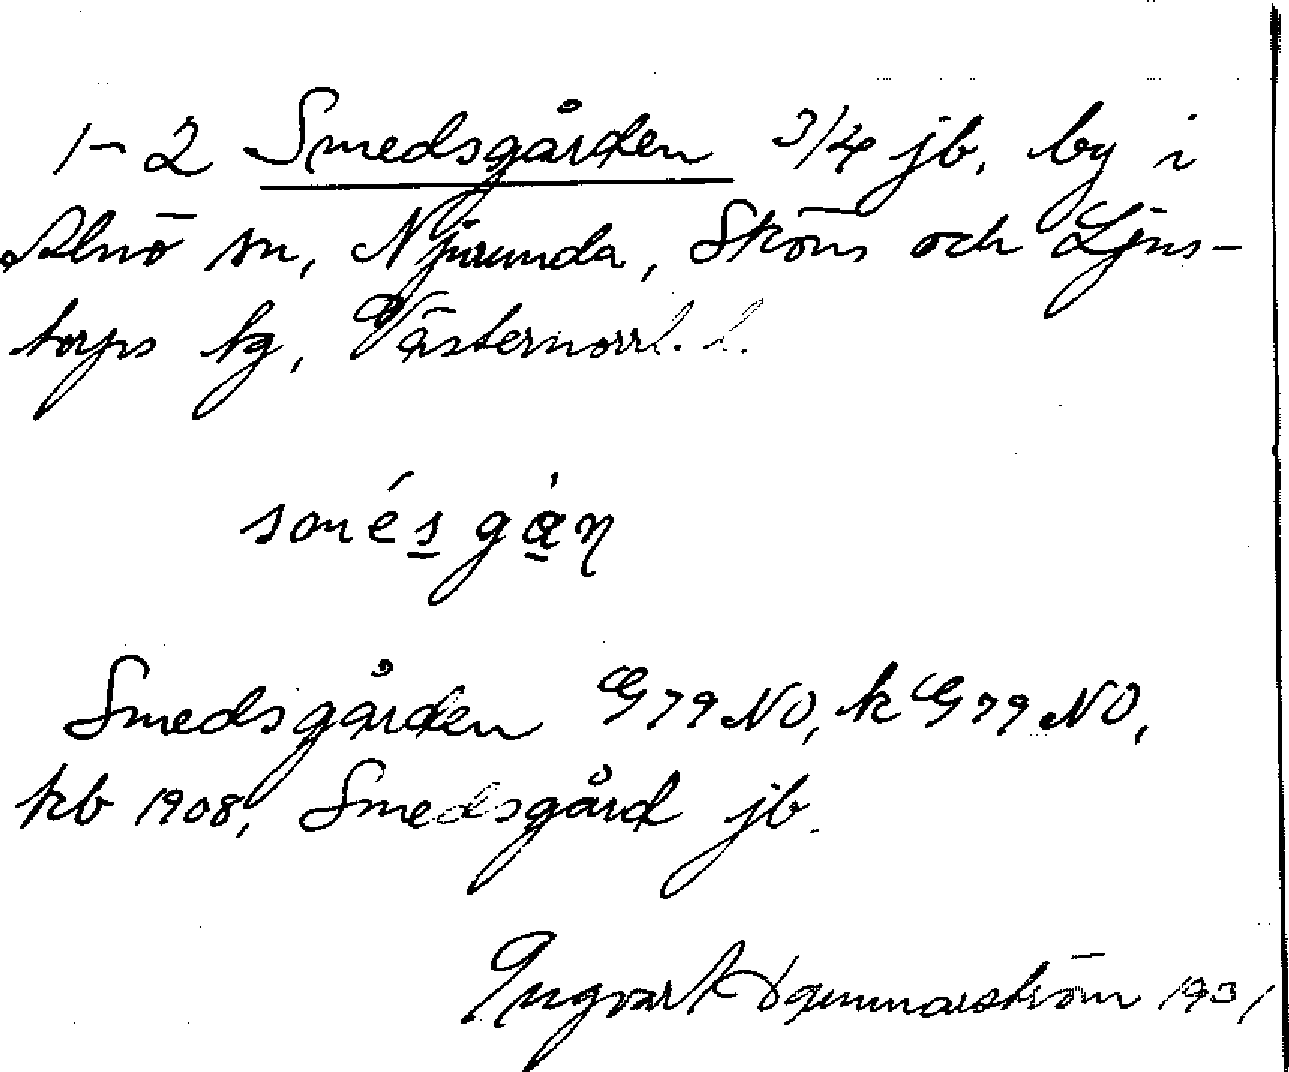 1–2 Smedsgården 3/4 jb. by i
Alnö sn, Njurunda, Sköns och Ljus-
torps tg, Västernorrl. l.
smés gàn
Smedsgården G 79 NO, k G 79 NO,
kb 1908, Smedsgård jb.
Ingvar Hammarström 1931